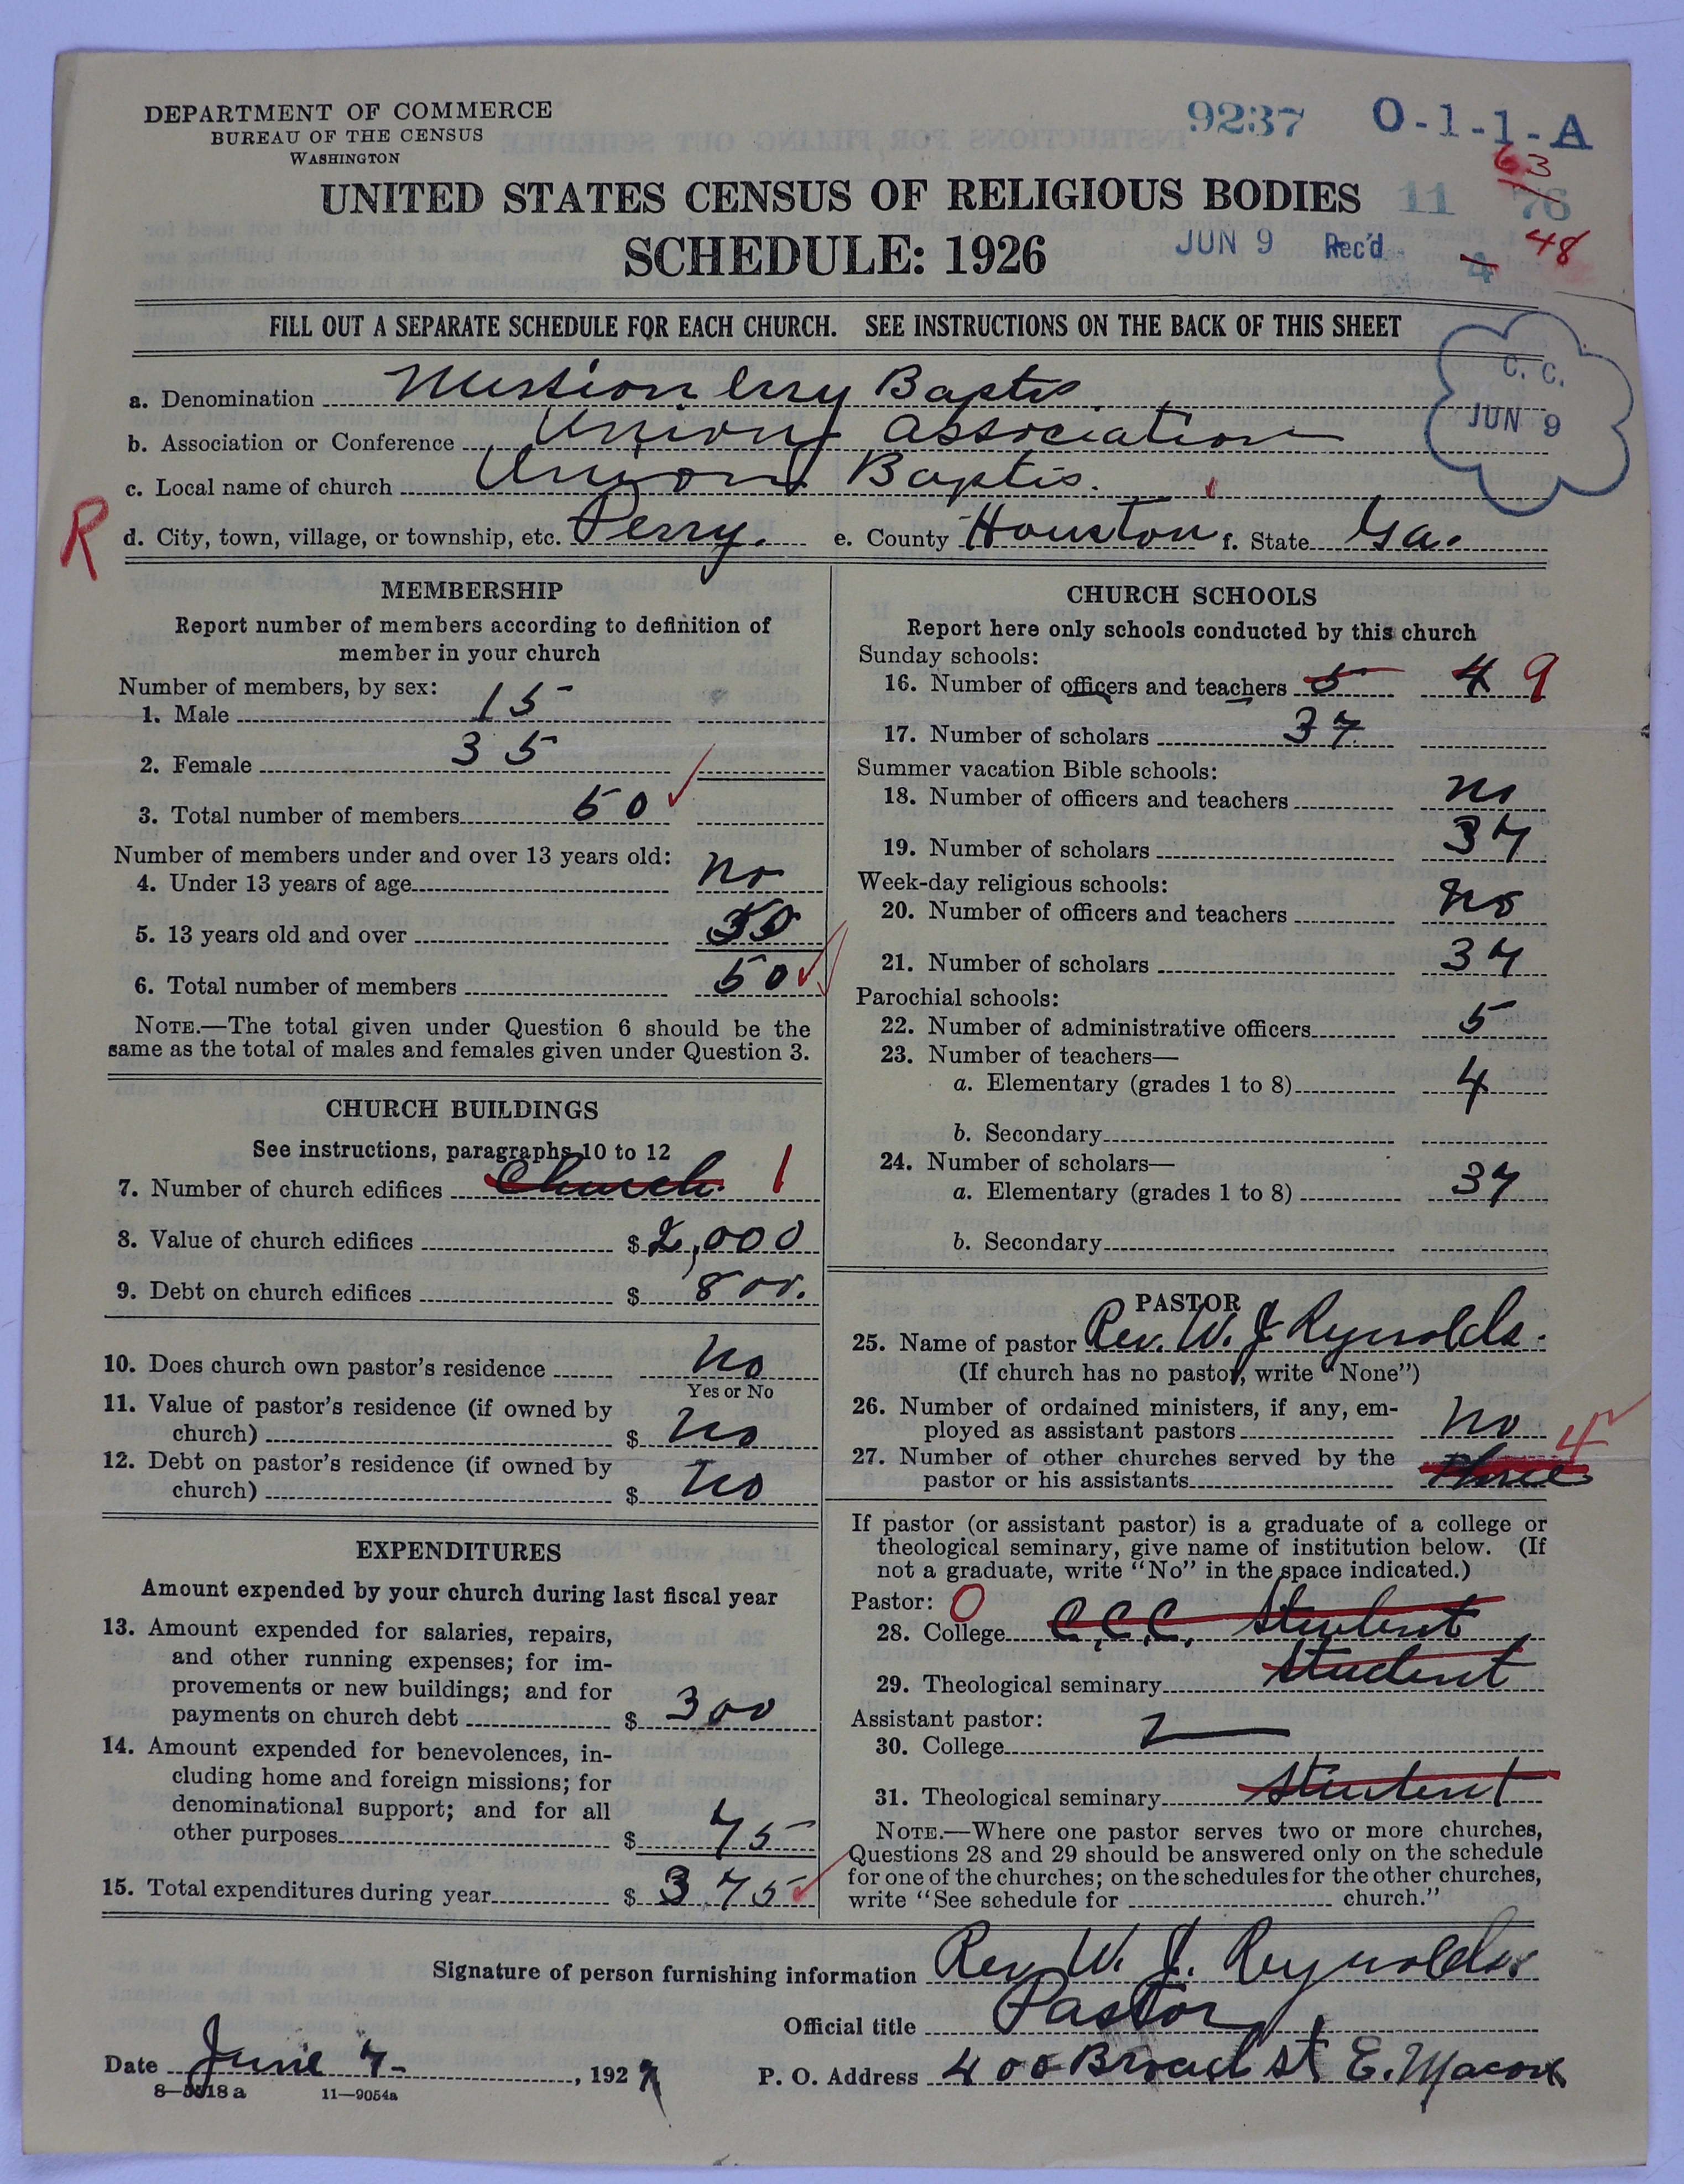 DEPARTMENT OF COMMERCE
BUREAU OF THE CENSUS
WASHINGTON
9237 O-1-1-A
63
UNITED STATES CENSUS OF RELIGIOUS BODIES 11 76
SCHEDULE: 1926 JUN 9 Rec'd 4 48
FILL OUT A SEPARATE SCHEDULE FOR EACH CHURCH. SEE INSTRUCTIONS ON THE BACK OF THIS SHEET
C. C.
JUN 9
a. Denomination Baptis
b. Association or Conference Union association
c. Local name of church Union Baptis.
R
d. City, town, village, or township, etc. Perry. e. County Houston f. State Ga.
MEMBERSHIP
Report number of members according to definition of
member in your church
Number of members, by sex:
1. Male 15
2. Female 35
3. Total number of members 50
Number of members under and over 13 years old:
4. Under 13 years of age no
5. 13 years old and over
6. Total number of members 50
NOTE.—The total given under Question 6 should be the
same as the total of males and females given under Question 3.
CHURCH BUILDINGS
See instructions, paragraphs 10 to 12
7. Number of church edifices Church 1
8. Value of church edifices $ 2,000
9. Debt on church edifices $ 800.
10. Does church own pastor's residence No
Yes or No
11. Value of pastor's residence (if owned by
church) $ No
12. Debt on pastor's residence (if owned by
church) $ No
EXPENDITURES
Amount expended by your church during last fiscal year
13. Amount expended for salaries, repairs,
and other running expenses; for im-
provements or new buildings; and for
payments on church debt $ 300
14. Amount expended for benevolences, in-
cluding home and foreign missions; for
denominational support; and for all
other purposes $ 75
15. Total expenditures during year $ 375
CHURCH SCHOOLS
Report here only schools conducted by this church
Sunday schools:
16. Number of officers and teachers 5 4 9
17. Number of scholars 37
Summer vacation Bible schools:
18. Number of officers and teachers no
19. Number of scholars 37
Week-day religious schools:
20. Number of officers and teachers no
21. Number of scholars 37
Parochial schools:
22. Number of administrative officers 5
23. Number of teachers—
a. Elementary (grades 1 to 8) 4
b. Secondary
24. Number of scholars—
a. Elementary (grades 1 to 8) 37
b. Secondary
PASTOR
25. Name of pastor Rev. W. J Reynolds.
(If church has no pastor, write "None")
26. Number of ordained ministers, if any, em-
ployed as assistant pastors no
27. Number of other churches served by the 4
pastor or his assistants three
If pastor (or assistant pastor) is a graduate of a college or
theological seminary, give name of institution below. (If
not a graduate, write "No" in the space indicated.)
Pastor: 0
28. College C.C.C. Student
29. Theological seminary Student
Assistant pastor:
30. College
31. Theological seminary Student
NOTE.—Where one pastor serves two or more churches,
Questions 28 and 29 should be answered only on the schedule
for one of the churches; on the schedules for the other churches,
write "See schedule for church."
Signature of person furnishing information Rev W. J. Reynolds
Official title Pastor
Date June 7-, 1927 P. O. Address 400 Broad st E. Macon
8—5518a 11—9054a